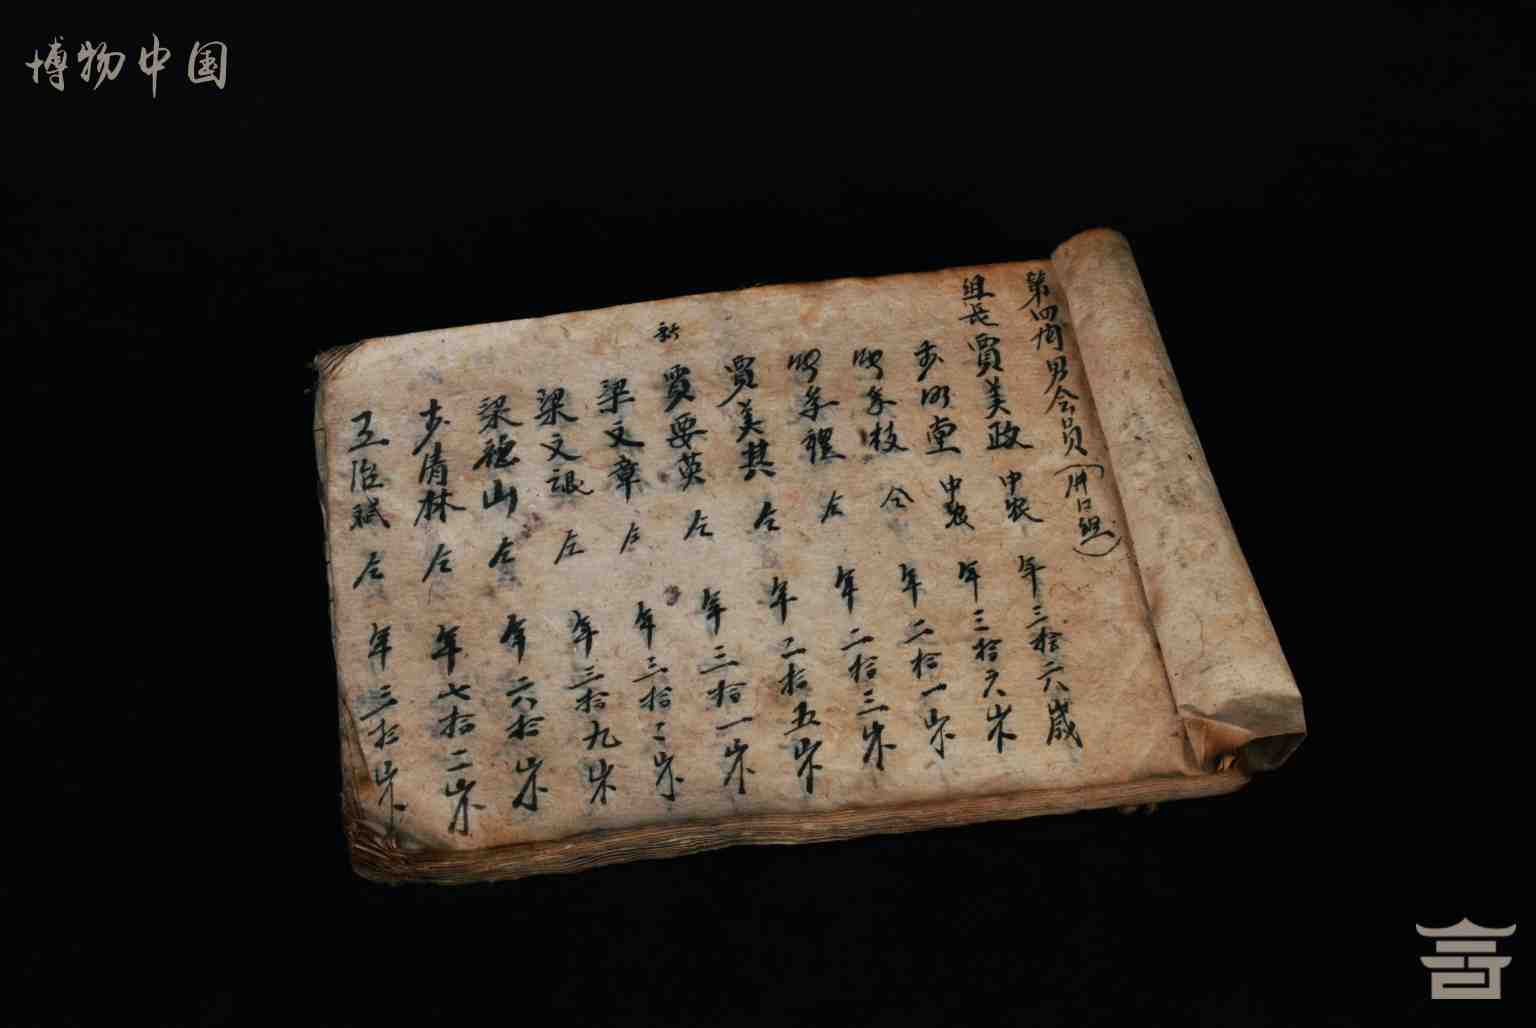 博物中国
第四 男会员
组长 贾美政 中农 年三拾六嵗
明堂 中农 年三拾六岁
枝 仝 年二拾一岁
禮 仝 年二拾三岁
贾美其 仝 年二拾五岁
新 贾要英 仝 年三拾一岁
梁文章 仝 年三拾二岁
梁文 仝 年三拾九岁
梁德山 仝 年六拾岁
步清林 仝 年七拾二岁
王治斌 仝 年三拾岁